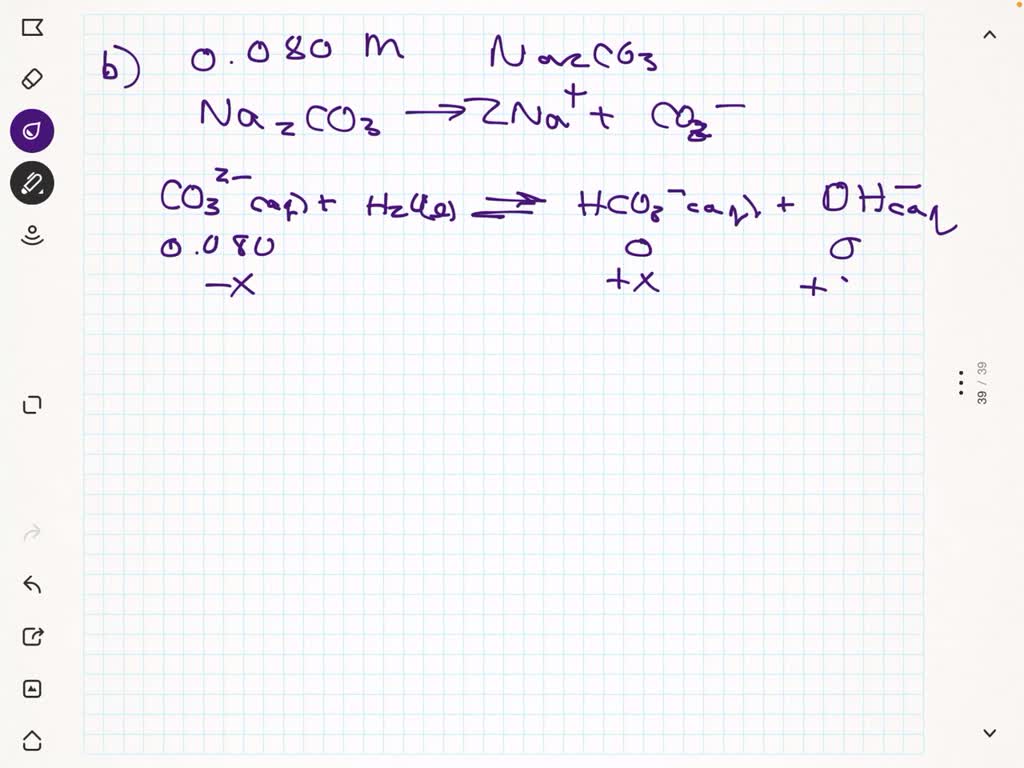 b) 0.080 M Na2CO3
Na2CO3 → 2Na+ + CO3-
CO3 2- (aq) + H2O(l) ⇌ HCO3-(aq) + OH-(aq
0.080 0 0
-x +x +
39 / 39